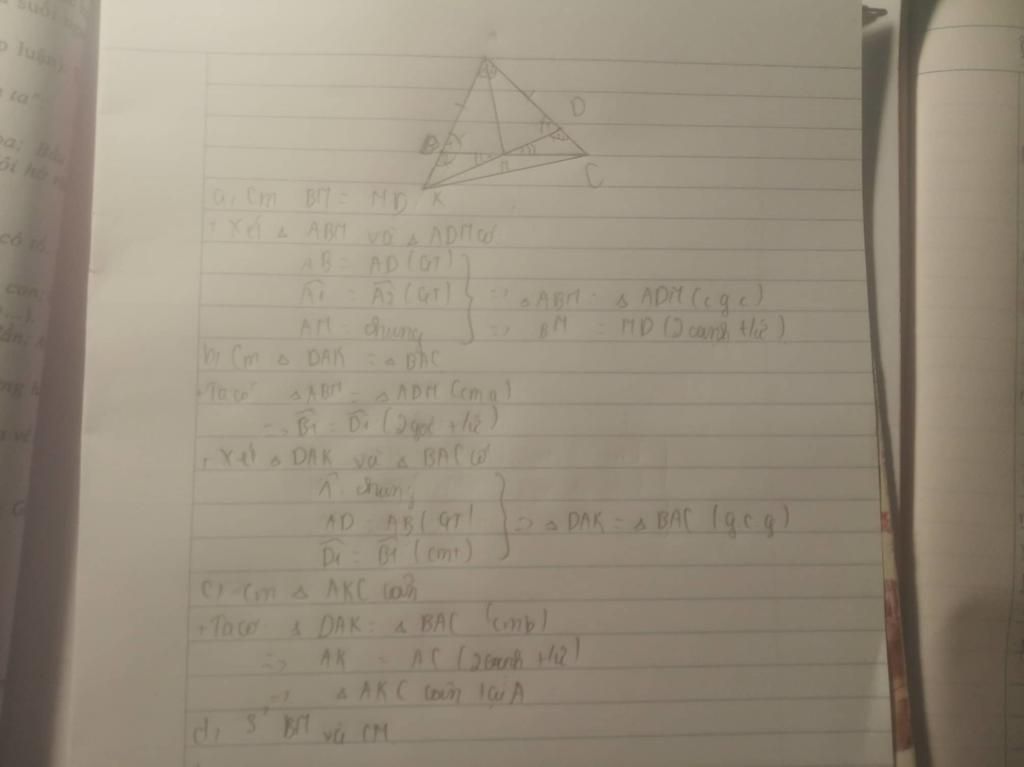 B
D
M
C
K
a, Cm BM = MD
+ Xét △ ABM và △ ADM có
AB = AD (GT)
Â1 = Â2 (GT) => △ABM = △ ADM (c g c)
AM = chung => BM = MD (2 cạnh t/ứ)
b, Cm △ DAK = △ BAC
+ Ta có △ABM = △ADM (cma)
=> B̂1 = D̂1 (2 góc t/ứ)
+ Xét △ DAK và △ BAC có
Â chung
AD = AB (GT) => △ DAK = △ BAC (g c g)
D̂1 = B̂1 (cmt)
c, Cm △ AKC cân
+ Ta có △ DAK = △ BAC (cmb)
=> AK = AC (2 cạnh t/ứ)
=> △ AKC cân tại A
d, S² BM và CM